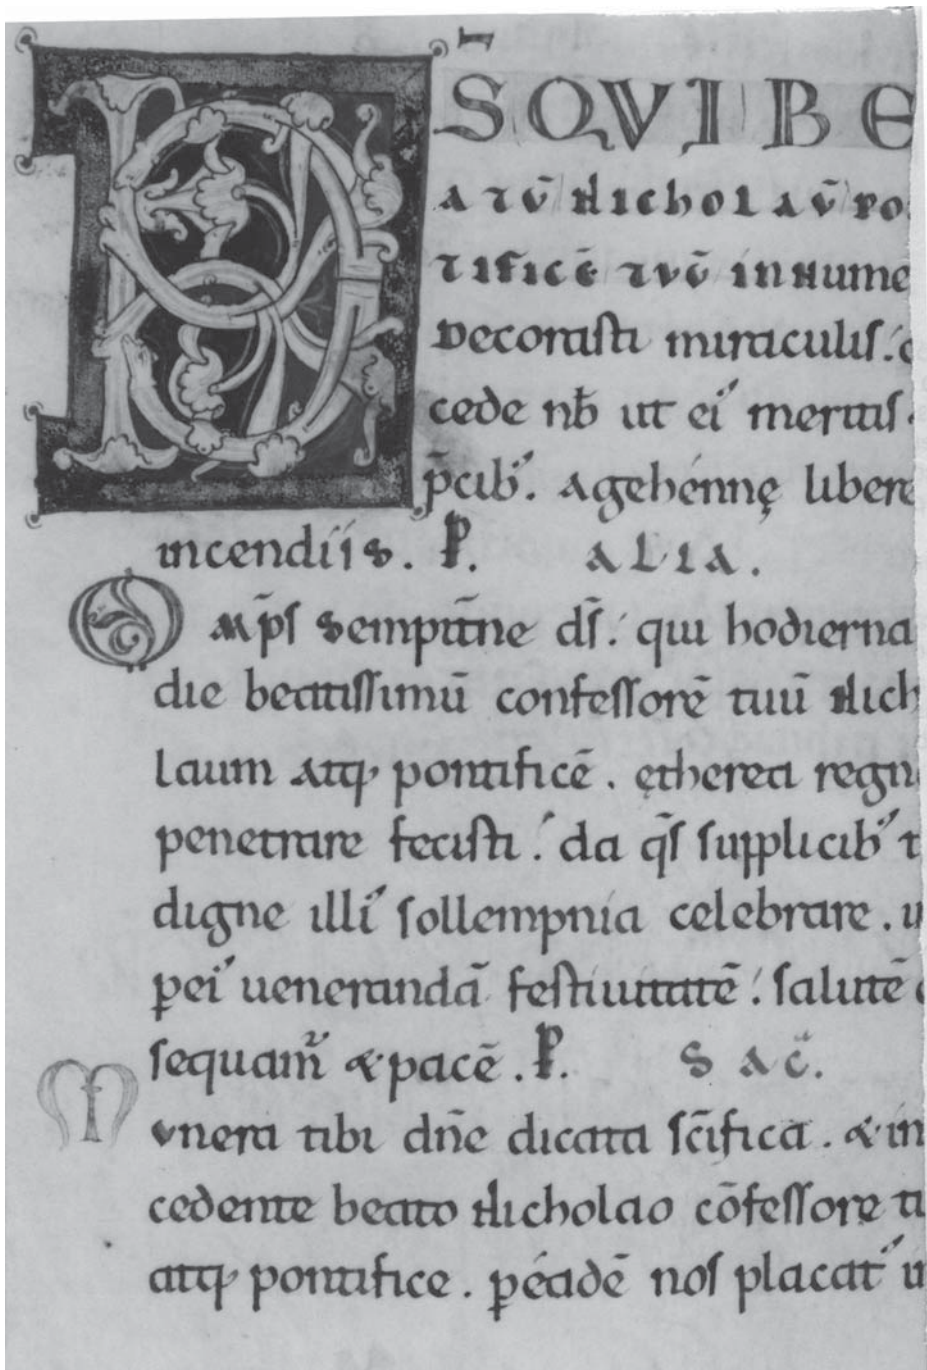 DS QVI BE
ATŪ NICHOLAŪ PO
TIFICĒ TVŪ INNUME
Decorasti miraculis.
cede nƀ ut ei᾽ meritis
p̄cib᾽. Agehénnę libere
incendiís. P. ALIA.
Om̄ps sempit̄ne ds̄. qui hodierna
die beatissimū confessorē tuū Nich
laum atq; pontificē. ętherea regn
penetrare fecisti. da q̄s supplicib᾽ t
digne illi᾽ sollempnia celebrare. u
ꝑei᾽ uenerandā festiuitatē. salutē
sequam᾽ &pacē. P. SAC̄.
Munera tibi dn̄e dicata sc̄ifica. &in
cedente beato Nicholao cōfessore tu
atq; pontifice. ꝑéadē nos placat᾽ in